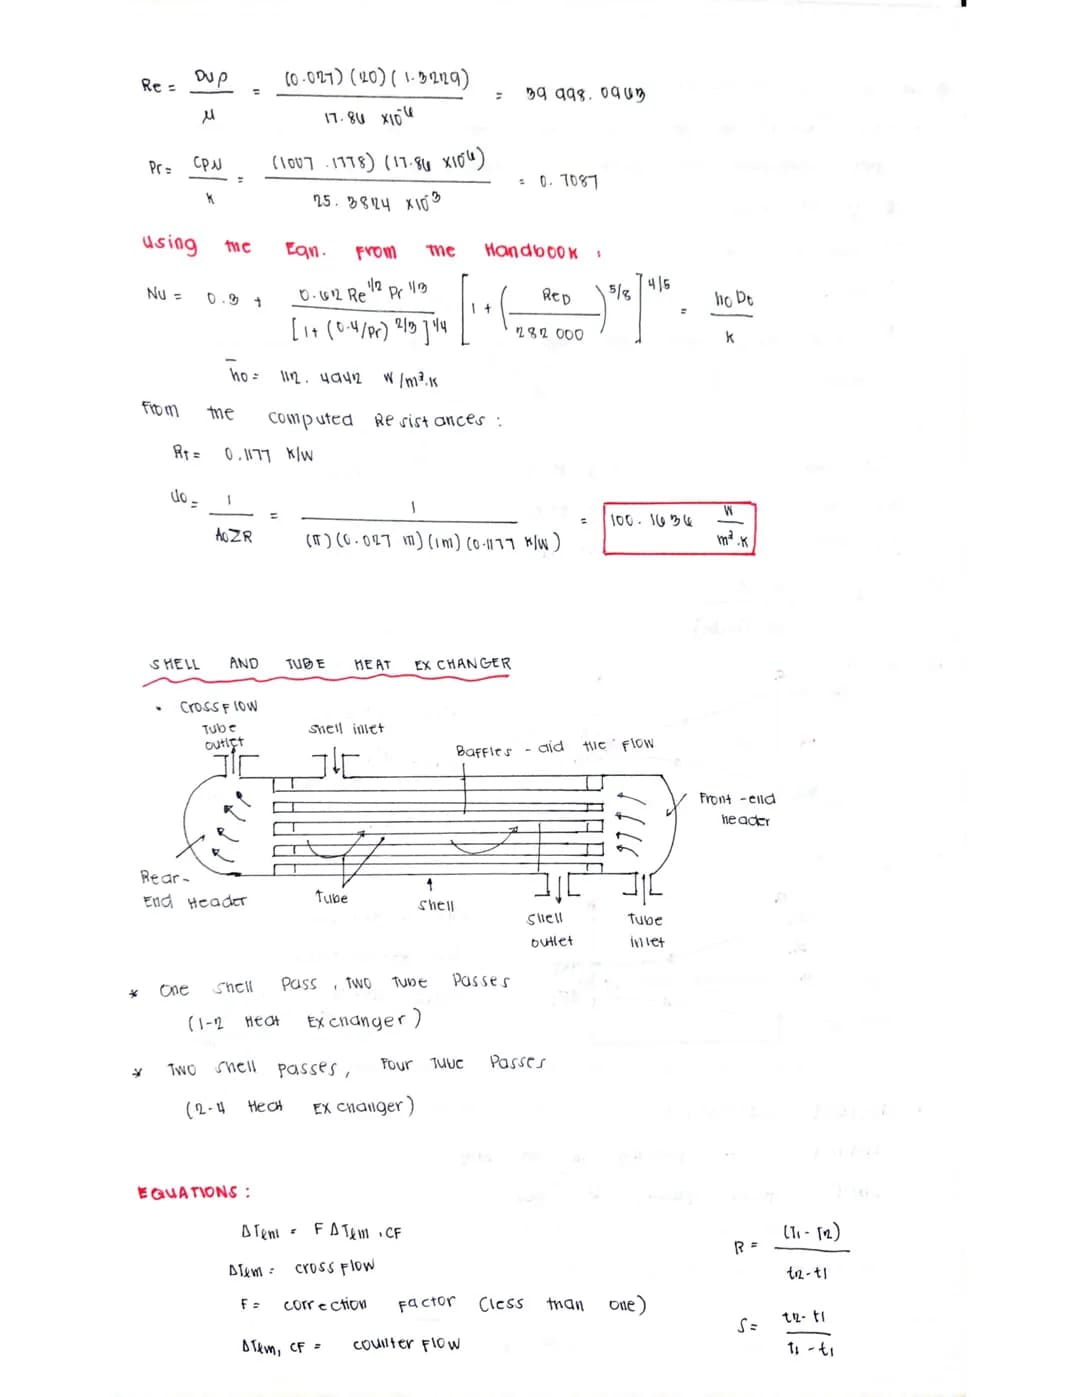 Re = Dvρ / μ = (0.027)(20)(1.3229) / 17.86 x10⁻⁶ = 39 998.0963
Pr = Cpμ / k = (1007.1778)(17.86 x10⁻⁶) / 25.3824 x10⁻³ = 0.7087
using the Eqn. From the Handbook :
Nu = 0.3 + 0.62 Re^1/2 Pr^1/3 / [1+(0.4/Pr)^2/3]^1/4 [1 + (ReD / 282 000)^5/8]^4/5 = ho Do / k
ho = 112.4942 W/m².K
From the computed Resistances :
RT = 0.1177 K/W
Uo = 1 / AoΣR = 1 / (π)(0.027 m)(1m)(0.1177 K/W) = 100.1636 W / m².K
SHELL AND TUBE HEAT EXCHANGER
• Crossflow
Tube outlet
Shell inlet
Baffles - aid the flow
Front-end header
Rear-End Header
Tube
Shell
Shell outlet
Tube inlet
* One Shell Pass, Two Tube Passes
(1-2 Heat Exchanger)
* Two Shell passes, Four Tube Passes
(2-4 Heat Exchanger)
EQUATIONS :
ΔTlm = F ΔTlm, CF
R = (T1 - T2) / t2-t1
ΔTlm = cross flow
F = correction factor (less than one)
S = t2-t1 / t1-t1
ΔTlm, CF = counter flow